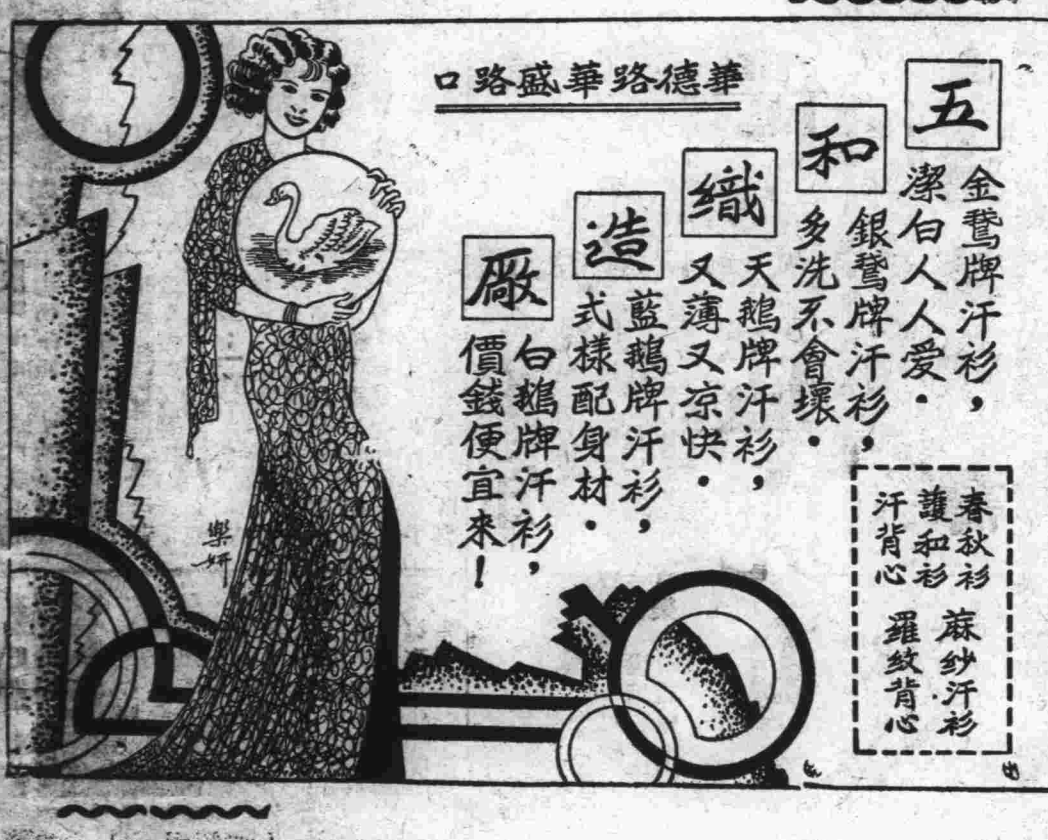 華德路華盛路口
五和織造廠
金鵞牌汗衫，
潔白人人愛．
銀鵞牌汗衫，
多洗不會壞．
天鵝牌汗衫，
又薄又凉快．
藍鵝牌汗衫，
式樣配身材．
白鵝牌汗衫，
價錢便宜來！
春秋衫
護和衫
汗背心
蔴纱汗衫
羅紋背心
樂妍